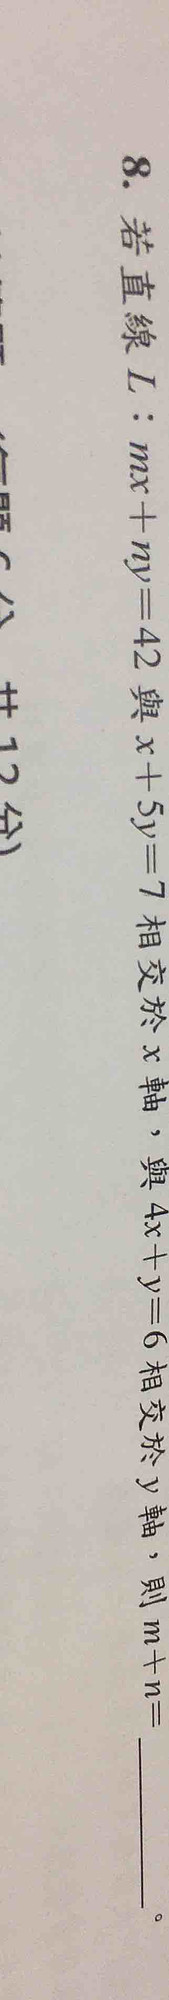 8. 若直線 L：mx+ny=42 與 x+5y=7 相交於 x 軸，與 4x+y=6 相交於 y 軸，則 m+n=＿＿＿＿。
共 12 分）